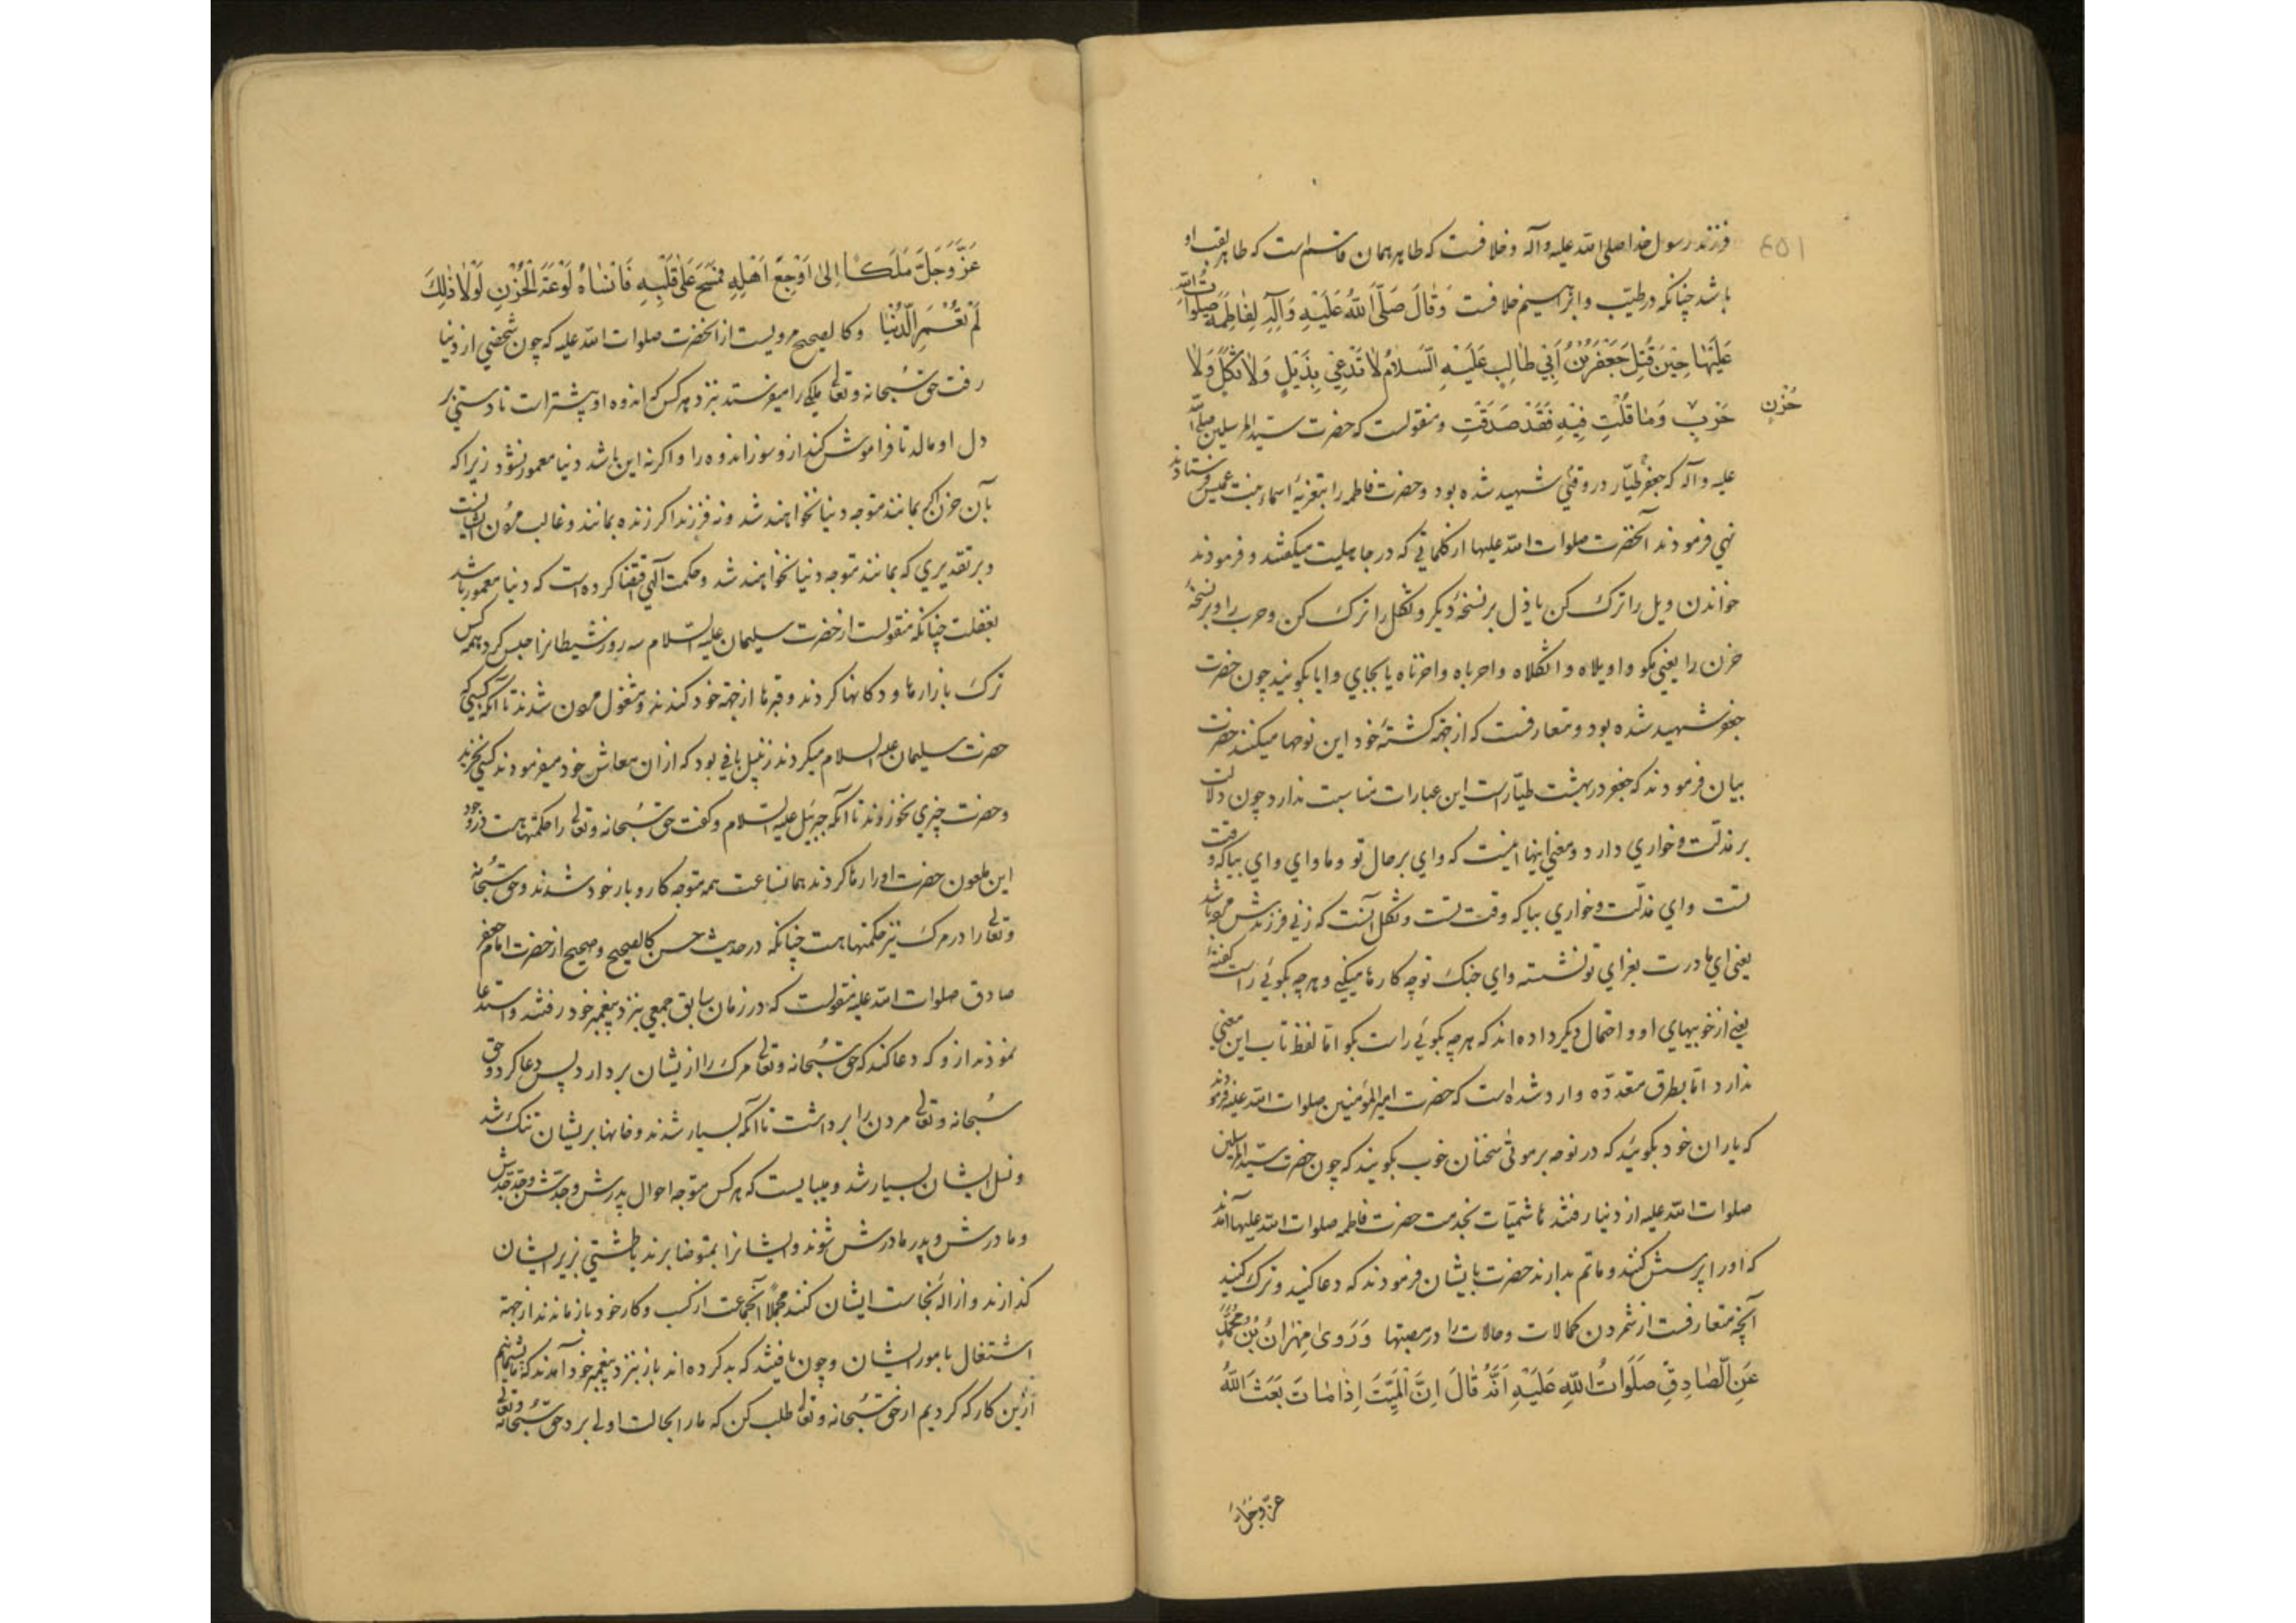 فرزند رسول خدا صلی الله علیه وآله وخلافست که طاهر همان قاسم است که طاهر لقب او
باشد چنانکه در طیّب وابراهیم خلافست وَقَالَ صَلَّی اللهُ عَلَیْهِ وَآلِهِ لِفَاطِمَةَ صَلَواتُ اللهِ
عَلَیْهَا حِینَ قُتِلَ جَعْفَرُ بْنُ أَبِي طَالِبٍ عَلَیْهِ السَّلَامُ لَا تَدْعِي بِذَیْلٍ وَلَا ثُکْلٍ وَلَا
حُزْنٍ
حَرَبٍ وَمَا قُلْتِ فِیهِ فَقَدْ صَدَقْتِ ومنقولست که حضرت سید المرسلین صلی الله
علیه وآله که جعفر طیّار در وقتی شهید شده بود وحضرت فاطمه را بتعزیهٔ اسماء بنت عمیس فرستادند
نهی فرمودند آنحضرت صلوات الله علیها از کلماتی که در جاهلیت میکفتند و فرمودند
خواندن ویل را ترک کن یا ذل بر نسخهٔ دیکر وثکل را ترک کن وحرب را وبر نسخهٔ
حزن را یعنی مکو واویلاه واثکلاه واحرباه واحزناه یا بجای وا یا بکویند چون حضرت
جعفر شهید شده بود ومتعارفست که از جهة کشتهٔ خود این نوحها میکنند حضرت
بیان فرمودند که جعفر در بهشت طیّار است این عبارات مناسبت ندارد چون دلالت
بر مذلّت وخواري دارد ومعنی اینها اینست که واي بر حال تو وما واي واي بیا که وقت
تست واي مذلّت وخواري بیا که وقت تست وثکل آنست که زنی فرزندش مرده باشد
یعنی اي مادرت بعزاي تو نشسته واي جنک تو چه کارها میکنی وهر چه بکوئی راست کفتهٔ
یعنی از خوبیهاي او واحتمال دیکر داده‌اند که هر چه بکوئی راست بکو امّا لفظ تاب این معنی
ندارد امّا بطرق متعدّده وارد شده است که حضرت امیر المؤمنین صلوات الله علیه فرمودند
که یاران خود بکوئید که در نوحه بر موتی سخنان خوب بکویند که چون حضرت سید المرسلین
صلوات الله علیه از دنیا رفتند هاشمیّات بخدمت حضرت فاطمه صلوات الله علیها آمدند
که او را پرسش کنند وماتم بدارند حضرت بایشان فرمودند که دعا کنید وترک کنید
آنچه متعارفست از شمردن کمالات وحالات را در مصیبتها وَرَوىٰ مِهْرَانُ بْنُ مُحَمَّدٍ
عَنِ الصَّادِقِ صَلَوَاتُ اللهِ عَلَیْهِ اَنَّهُ قَالَ اِنَّ الْمَیِّتَ اِذَا مَاتَ بَعَثَ اللهُ
عزّوجلّ
عَزَّوَجَلَّ مَلَکًا اِلىٰ اَوْجَعِ اَهْلِهِ فَمَسَحَ عَلىٰ قَلْبِهِ فَاَنْسَاهُ لَوْعَةَ الْحُزْنِ لَوْلَا ذٰلِكَ
لَمْ تَعْمُرِ الدُّنْیَا وکالصحیح مرویست از آنحضرت صلوات الله علیه که چون شخصی از دنیا
رفت حق سبحانه وتعالی ملکی را میفرستد بنزد هر کس که اندوه او بیشتر است تا دستی بر
دل او مالد تا فراموش کند از و سوز اندوه را واکر نه این باشد دنیا معمور نشود زیرا که
بآن حزن اکر بمانند متوجه دنیا نخواهند شد ونه فرزند اکر زنده بمانند وغالب مردن ایشانست
وبر تقدیري که بمانند متوجه دنیا نخواهند شد وحکمت الهی اقتضا کرده است که دنیا معمور باشد
بغفلت چنانکه منقولست از حضرت سلیمان علیه السلام سه روز شیطانرا حبس کرد همه کس
ترک بازارها ودکانها کردند وقبرها از جهة خود کندند ومشغول مردن شدند تا آنکه کسبی که
حضرت سلیمان علیه السلام میکردند زنبیل بافی بود که از ان معاش خود میفرمودند کسی نخرید
وحضرت چیزي نخوردند تا آنکه جبرئیل علیه السلام وکفت حق سبحانه وتعالی را حکمتها هست در وجود
این ملعون حضرت او را رها کردند همان ساعت همه متوجه کار وبار خود شدند وحق سبحانه
وتعالی را در مرک نیز حکمتها هست چنانکه در حدیث حسن کالصحیح وصحیح از حضرت امام جعفر
صادق صلوات الله علیه منقولست که در زمان سابق جمعی بنزد پیغمبر خود رفتند واستدعا
نمودند از و که دعا کند که حق سبحانه وتعالی مرک را از یشان بردارد پس دعا کرد وحق
سبحانه وتعالی مردن را برداشت تا آنکه بسیار شدند وخانها بریشان تنک شد
ونسل ایشان بسیار شد ومیبایست که هر کس متوجه احوال پدرش وجدش وجد جدش
ومادرش وپدر مادرش شوند وایشانرا بمتوضا برند یا طشتی زیر ایشان
کذارند وازالهٔ نجاست ایشان کنند مجملاً آنجماعت از کسب وکار خود باز ماندند از جهة
اشتغال بامور ایشان وچون یافتند که بد کرده‌اند باز بنزد پیغمبر خود آمدند که ما پشیمانیم
ازین کار که کردیم از حق سبحانه وتعالی طلب کن که ما را بحالت اولی برد حق سبحانه وتعالی